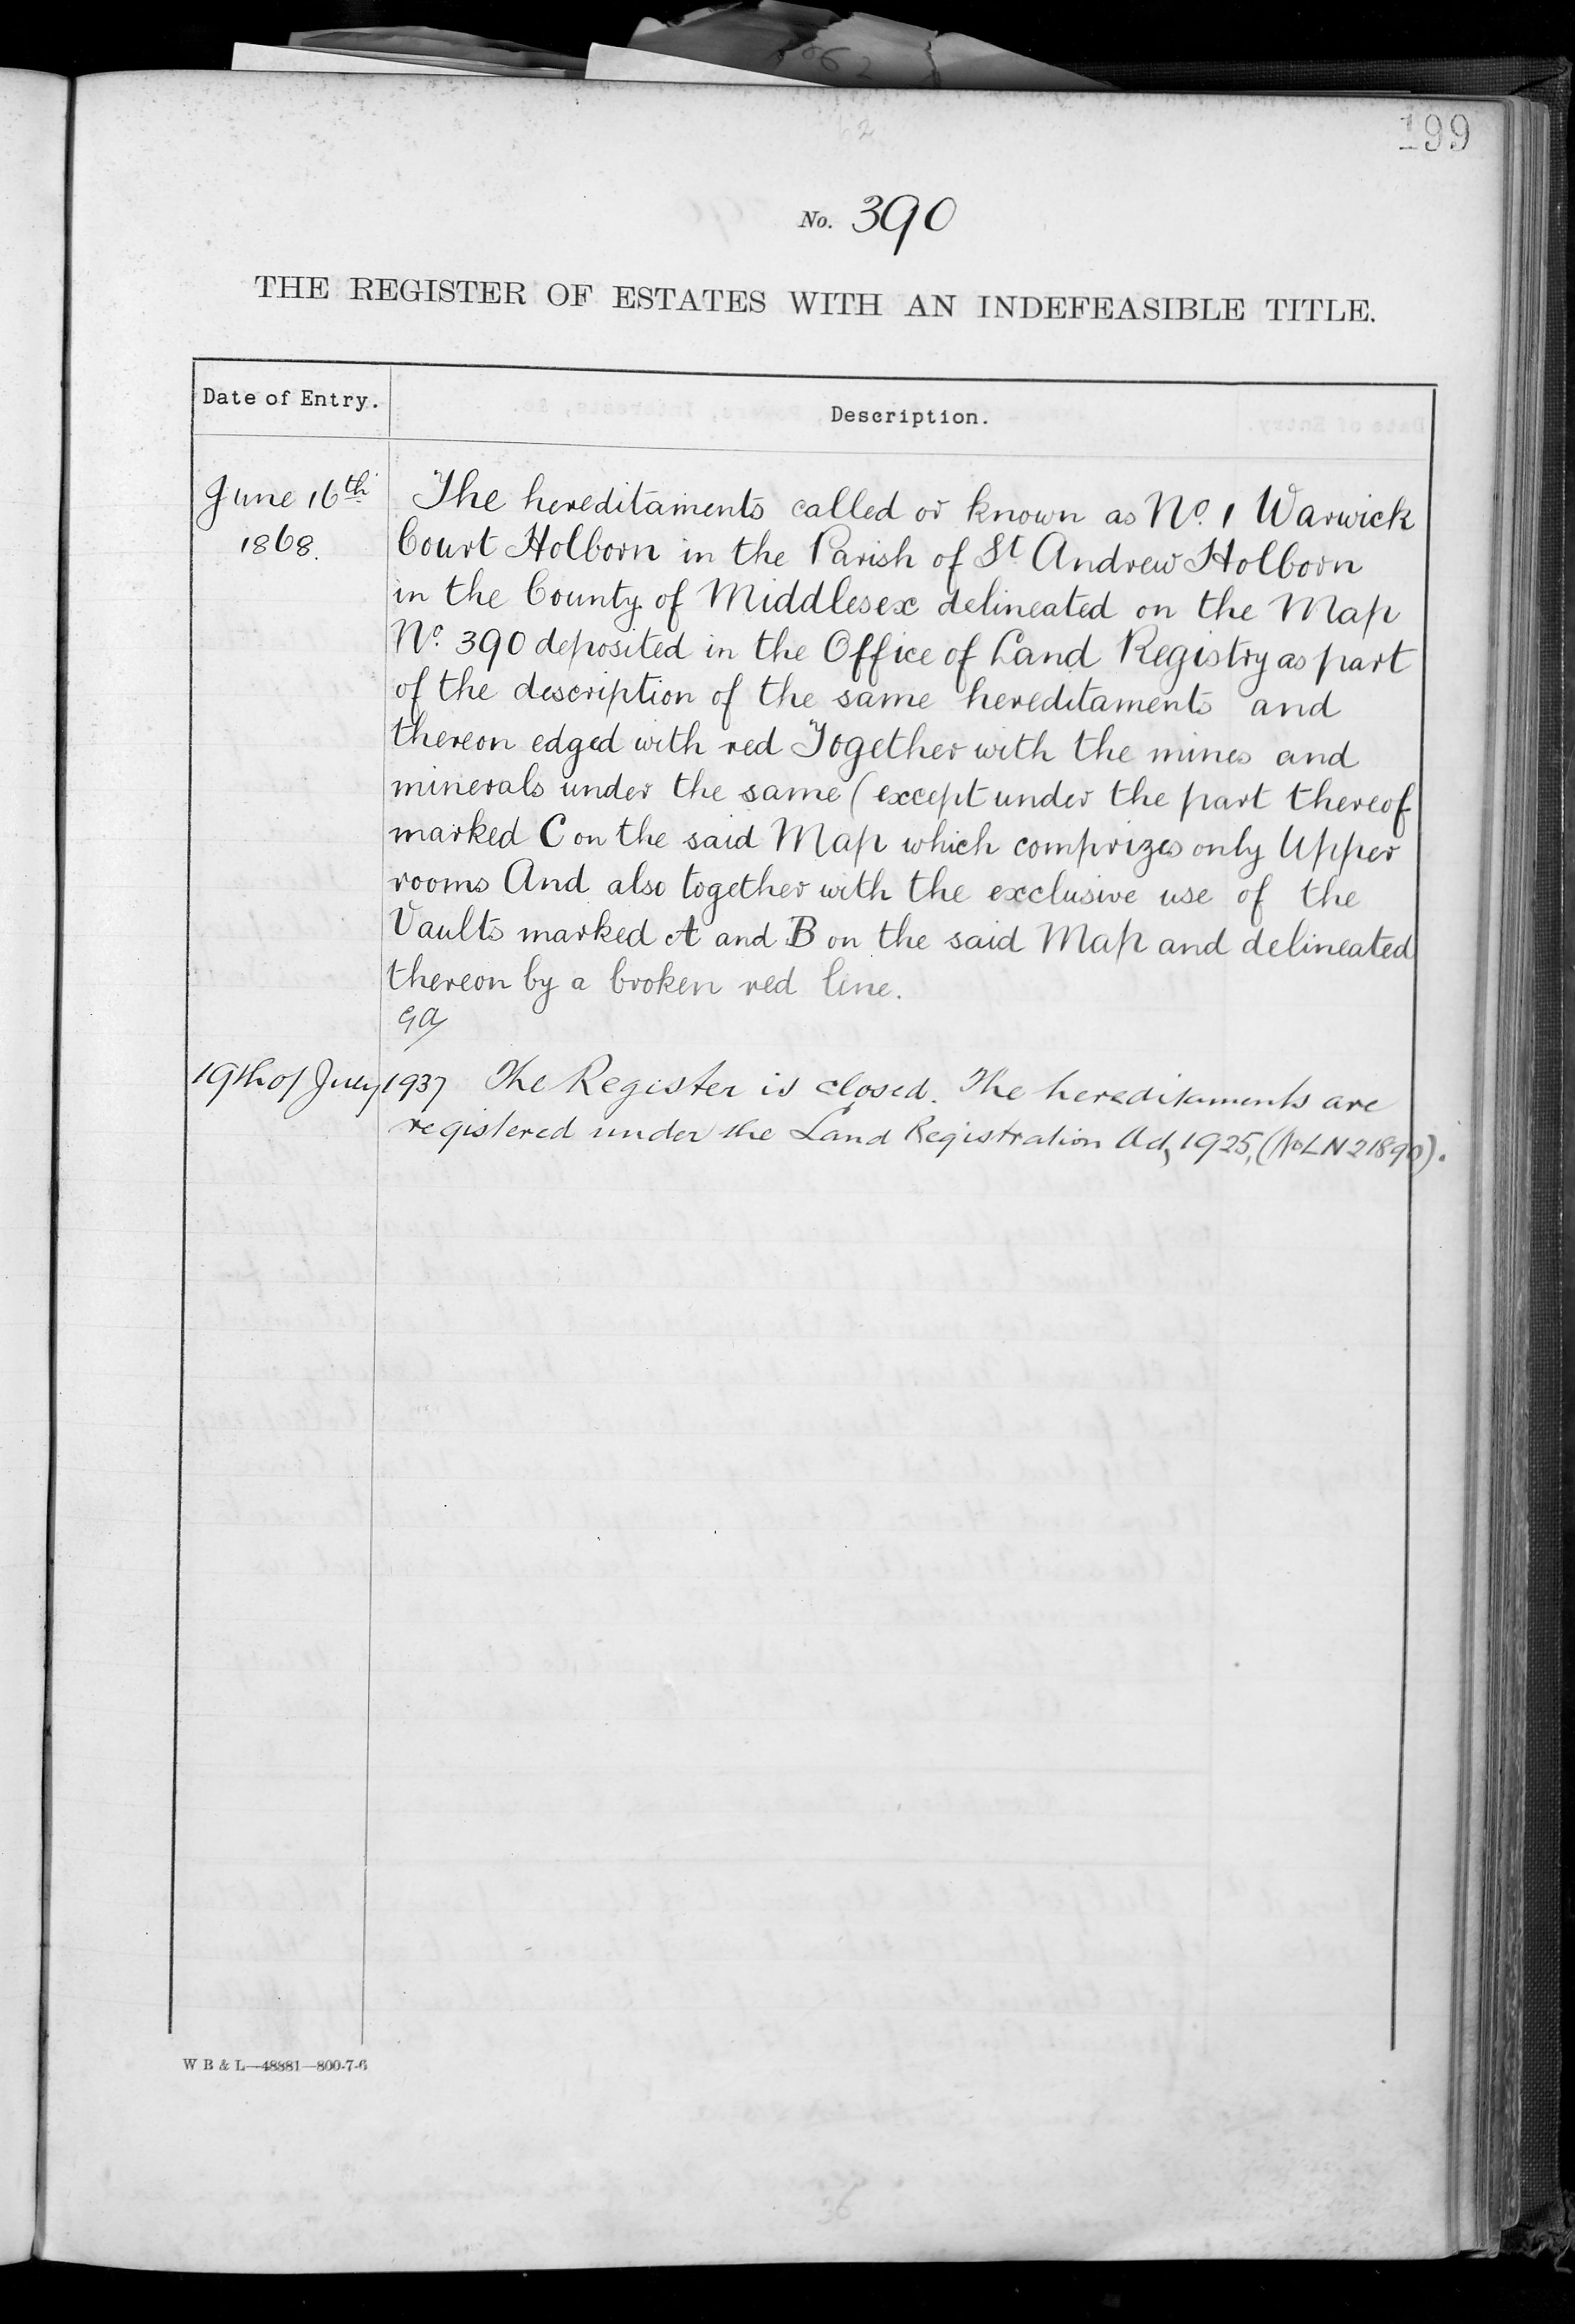 199
No. 390
THE REGISTER OF ESTATES WITH AN INDEFEASIBLE TITLE.
Date of Entry.
Description.
June 16th
1868.
The hereditaments called or known as No. 1 Warwick
Court Holborn in the Parish of St Andrew Holborn
in the County of Middlesex delineated on the Map
No. 390 deposited in the Office of Land Registry as part
of the description of the same hereditaments and
thereon edged with red Together with the mines and
minerals under the same (except under the part thereof
marked C on the said Map which comprizes only Upper
rooms And also together with the exclusive use of the
Vaults marked A and B on the said Map and delineated
thereon by a broken red line.
19th of July 1937 The Register is closed. The hereditaments are
registered under the Land Registration Act, 1925, (No LN 21890).
W B & L—48881—800-7-6